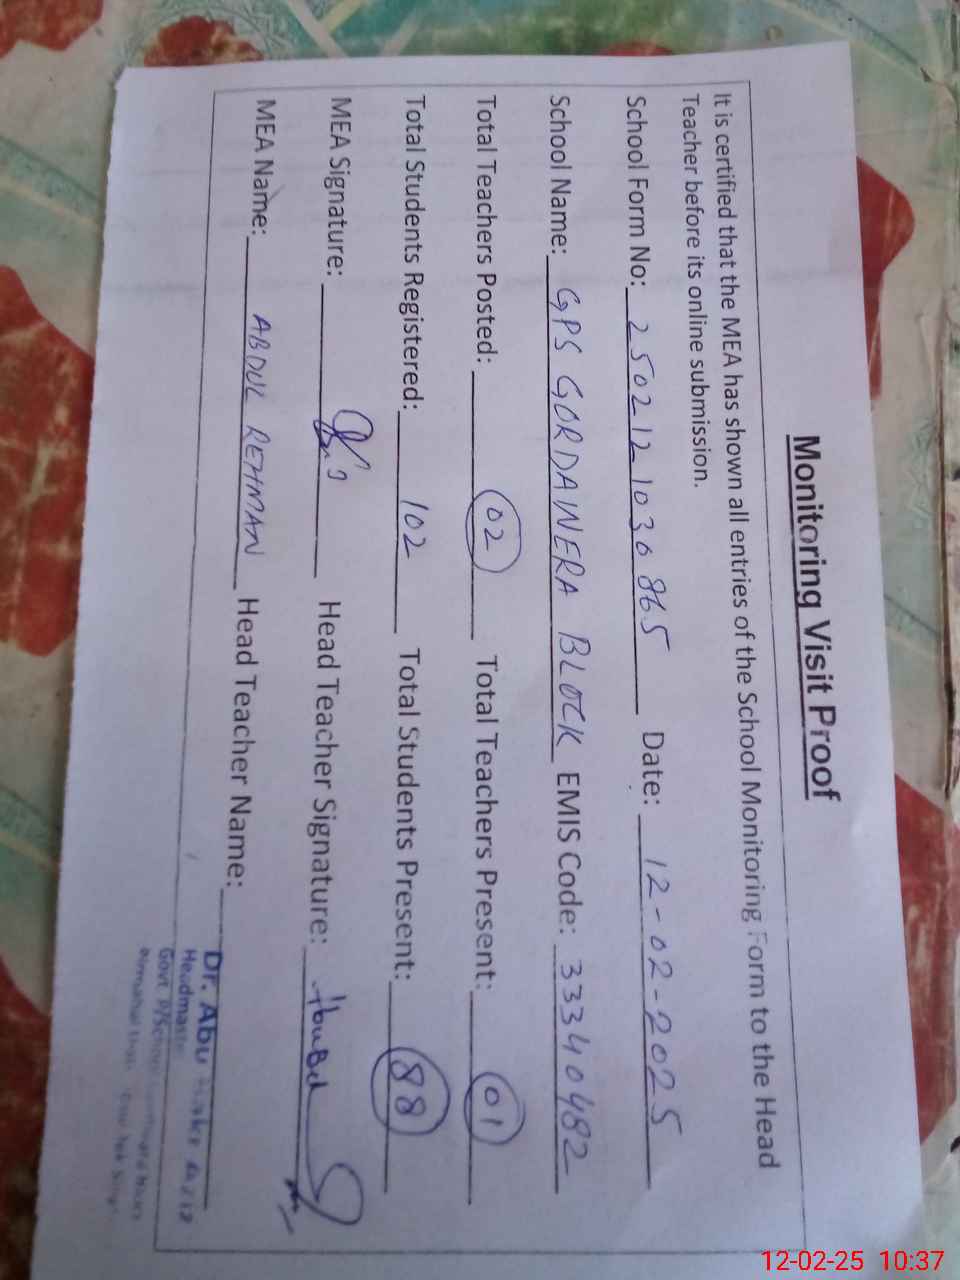 Monitoring Visit Proof
It is certified that the MEA has shown all entries of the School Monitoring Form to the Head
Teacher before its online submission.
School Form No: 250212 1030 865 Date: 12-02-2025
School Name: GPS GORDANERA BLOCK EMIS Code: 33340482
Total Teachers Posted: 02 Total Teachers Present: 01
Total Students Registered: 102 Total Students Present: 88
MEA Signature: Head Teacher Signature:
MEA Name: ABDUL REHMAN Head Teacher Name:
Dr. Abu
Headmaster
Govt P/School
12-02-25 10:37